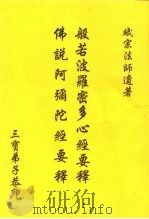 城宗法師遺著
般若波羅密多心經要釋
佛說阿彌陀經要釋
三寶弟子恭印